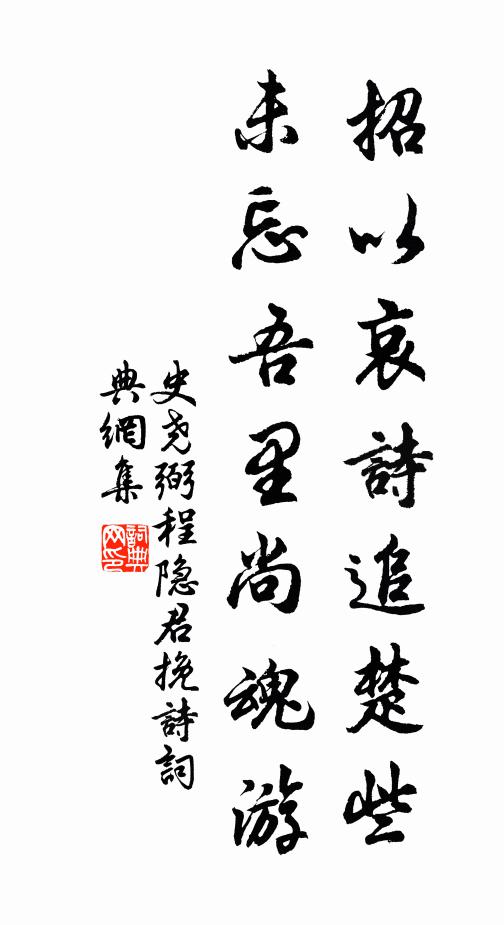 招以哀詩追楚些
未忘吾里尚魂游
史尧弼程隐君挽詩詞
典網集
詞典網印